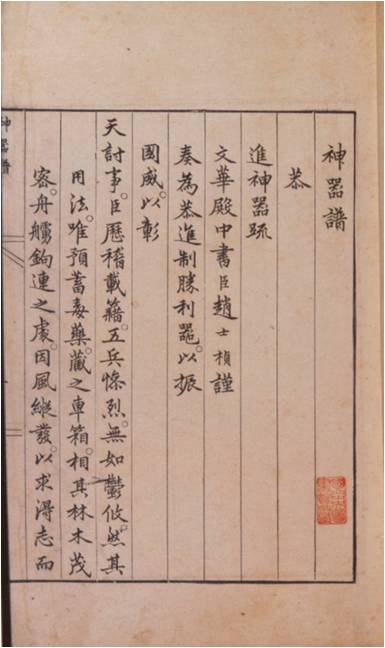 神噐譜
恭
進神噐疏
文華殿中書臣趙士楨謹
奏為恭進制勝利噐。以振
國威。以彰
天討事。臣歷稽載籍。五兵慘烈。無如鬱攸。然其
用法。唯預蓄毒藥。藏之車箱。相其林木茂
密。舟艫鉤連之處。因風縱發。以求得志而
神噐譜